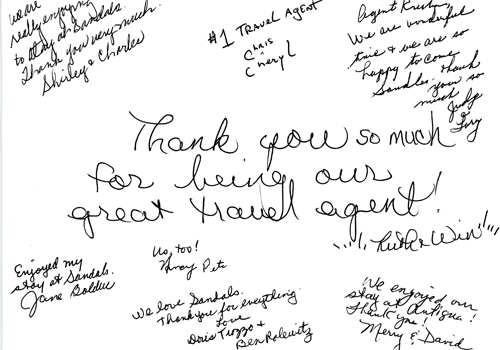 We are
really enjoying
to stay at Sandals.
Thank you very much.
Shirley & Charles
#1 TRAVEL AGENT
Chris
&
Cheryl
Agent
We are wonderful
time & we are so
happy to come
Sandals. Thank
you so
much
Judy
&
Thank you so much
for being our
great travel agent!
Ruth & Win
Enjoyed my
stay at Sandals.
Jane
Us, too!
Pete
We love Sandals.
Thank you for everything
Love
Doris &
Ben
We enjoyed our
stay at Antigua!
Thank you!
Merry & David